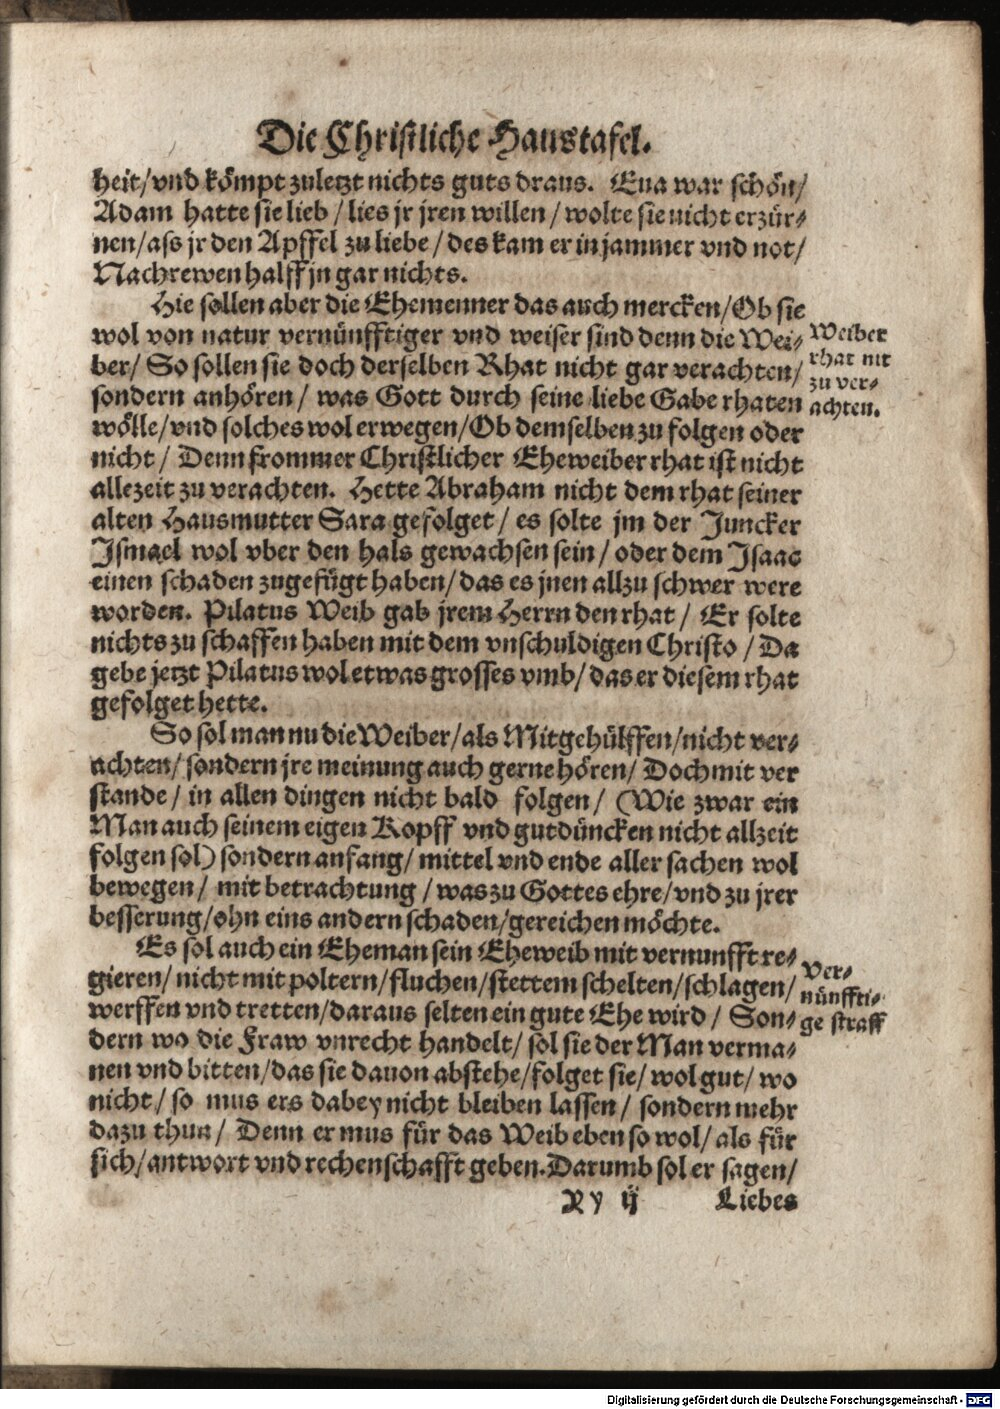 Die Christliche Haustafel.
heit/vnd kömpt zuletzt nichts guts draus. Eua war schön/
Adam hatte sie lieb/lies jr jren willen/wolte sie nicht erzür-
nen/ass jr den Apffel zu liebe/des kam er in jammer vnd not/
Nachrewen halff jn gar nichts.
Hie sollen aber die Ehemenner das auch mercken/Ob sie
wol von natur vernünfftiger vnd weiser sind denn die Wei-
ber/So sollen sie doch derselben Rhat nicht gar verachten/
sondern anhören/was Gott durch seine liebe Gabe rhaten
wölle/vnd solches wol erwegen/Ob demselben zu folgen oder
nicht/Denn frommer Christlicher Eheweiber rhat ist nicht
allezeit zu verachten. Hette Abraham nicht dem rhat seiner
alten Hausmutter Sara gefolget/es solte jm der Juncker
Ismael wol vber den hals gewachsen sein/oder dem Isaac
einen schaden zugefügt haben/das es jnen allzu schwer were
worden. Pilatus Weib gab jrem Herrn den rhat/Er solte
nichts zu schaffen haben mit dem vnschuldigen Christo/Da
gebe jetzt Pilatus wol etwas grosses vmb/das er diesem rhat
gefolget hette.
Weiber
rhat nit
zu ver-
achten.
So sol man nu die Weiber/als Mitgehülffen/nicht ver-
achten/sondern jre meinung auch gerne hören/Doch mit ver
stande/in allen dingen nicht bald folgen/(Wie zwar ein
Man auch seinem eigen Kopff vnd gutdüncken nicht allzeit
folgen sol) sondern anfang/mittel vnd ende aller sachen wol
bewegen/mit betrachtung/was zu Gottes ehre/vnd zu jrer
besserung/ohn eins andern schaden/gereichen möchte.
Es sol auch ein Eheman sein Eheweib mit vernunfft re-
gieren/nicht mit poltern/fluchen/stettem schelten/schlagen/
werffen vnd tretten/daraus selten ein gute Ehe wird/Son-
dern wo die Fraw vnrecht handelt/sol sie der Man verma-
nen vnd bitten/das sie dauon abstehe/folget sie/wol gut/wo
nicht/so mus ers dabey nicht bleiben lassen/sondern mehr
dazu thun/Denn er mus für das Weib eben so wol/als für
sich/antwort vnd rechenschafft geben. Darumb sol er sagen/
Ver-
nünffti-
ge straff
Xy ij Liebes
Digitalisierung gefördert durch die Deutsche Forschungsgemeinschaft - DFG